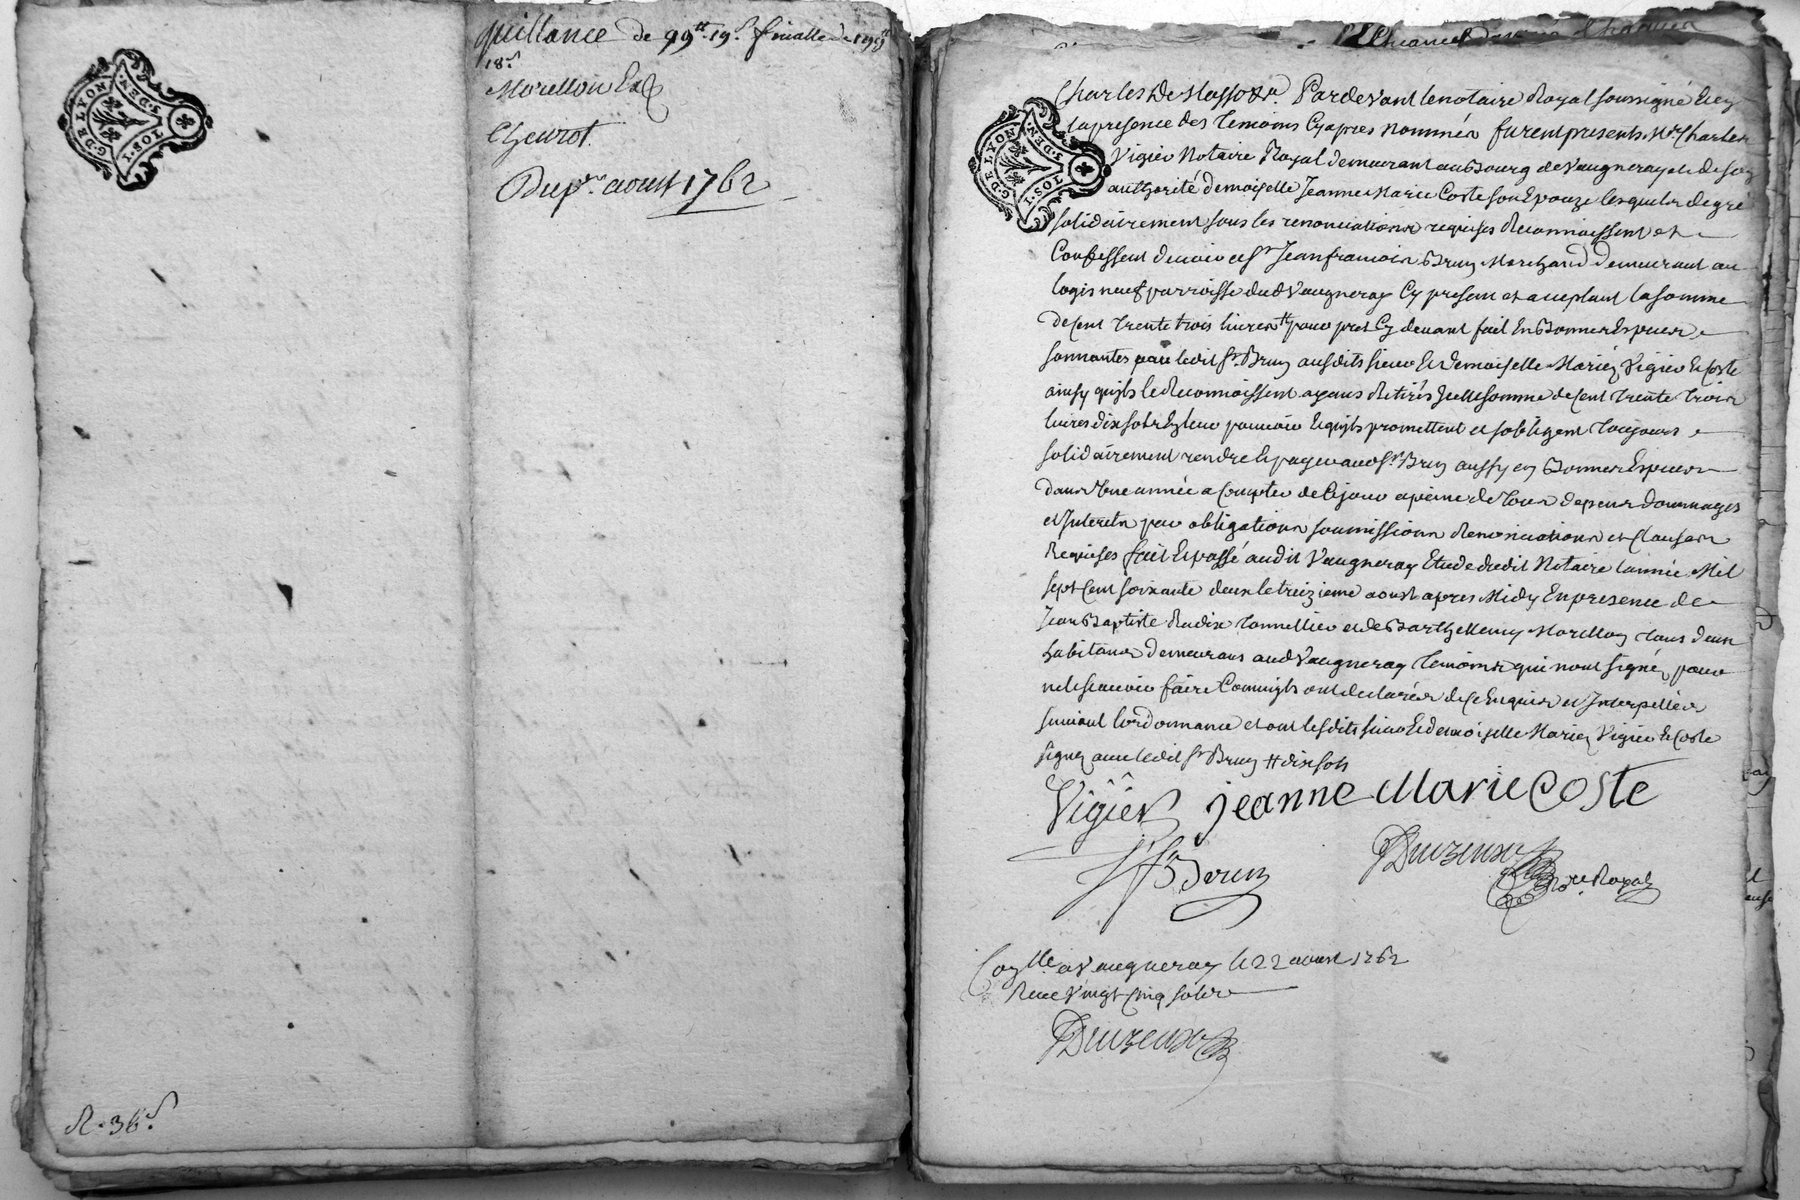 quittance de 99ᵗᵗ 19ˢ finalle de 199ᵗᵗ
18ˢ
Morellon Et
Cheurot.
Du 1ᵉʳ aoust 1762
G. DE LYON
1. SOL. 3. DEN.
R. 36ˢ
G. DE LYON
1. SOL. 3. DEN.
Pardevant le notaire Royal soussigné Et en
la presence des temoins Cy apres nommés furent presents Mᵉ Charles
Vigier Notaire Royal demeurant au Bourg de Vaugneray et de son
authorité demoiselle Jeanne Marie Coste son Epouze lesquels de gré
solidairement sous les renonciations requises Reconnoissent et
Confessent devoir a Sʳ Jean francois Brun Marchand demeurant au
logis neuf parroisse dud Vaugneray Cy present et acceptant la somme
de Cent trente trois livres # pour pret Cy devant fait En Bonnes Espices
sonnantes par ledit Sʳ Brun ausdits sieur Et demoiselle Mariés Vigier Et Coste
ainsy quils le Reconnoissent ayans Retirés Jcelle somme de Cent trente trois
livres dix sols En leur pouvoir Et quils promettent et sobligent toujours
solidairement rendre Et payer aud Sʳ Brun aussy en Bonnes Espices
dans Une année a Compter de Ce jour a peine de tous depens dommages
et Jnterets par obligations soumissions Renonciations et Clauses
Requises fait Et passé audit Vaugneray Etude dudit Notaire lannée Mil
sept Cent soixante deux le treizieme aoust apres Midy En presence de
Jean Baptiste Radix tonnellier et de Barthellemy Morellon tous deux
habitans demeurans aud Vaugneray temoins qui nont signé pour
ne le scavoir faire Comme ils ont declarés de Ce Enquis et Jnterpellés
suivant lordonnance et ont lesdits sieur Et demoiselle Mariés Vigier Et Coste
signez avec ledit Sʳ Brun # dix sols
Vigier jeanne Marie Coste
Brun
Nʳᵉ Royal
Conᵗˡˡᵉ a Vaugneray le 22 aoust 1762
Receu Vingt Cinq sols